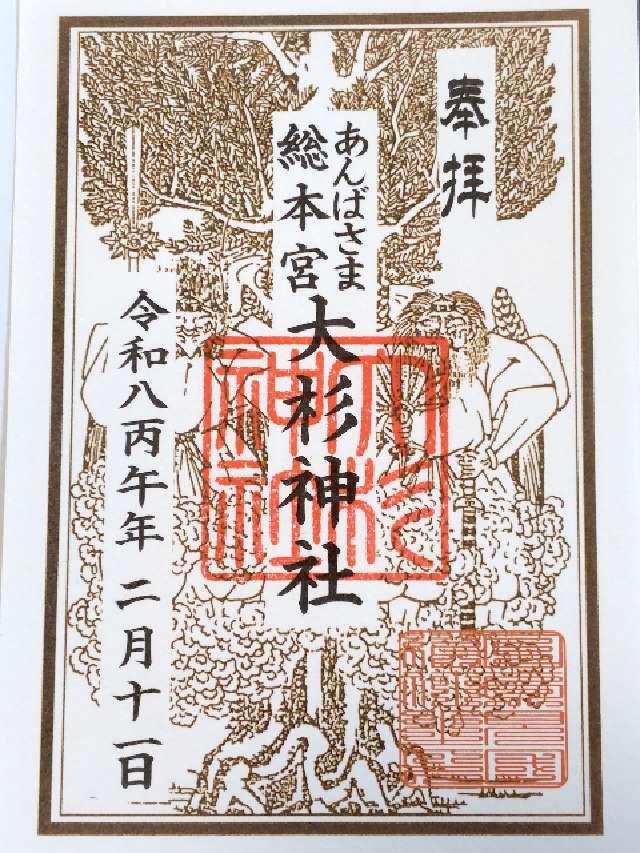 奉拝
あんばさま
総本宮
大杉神社
大杉神社
令和八丙午年 二月十一日